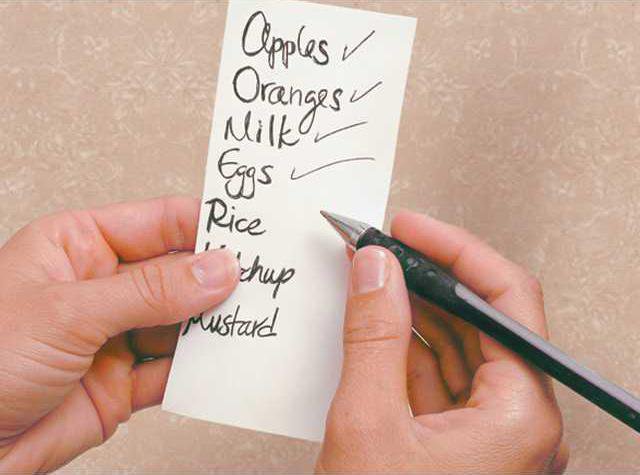 Apples
Oranges
Milk
Eggs
Rice
Mustard